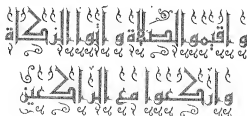 و اقيموا الصلاة و آتوا الزكاة
واركعوا مع الراكعين